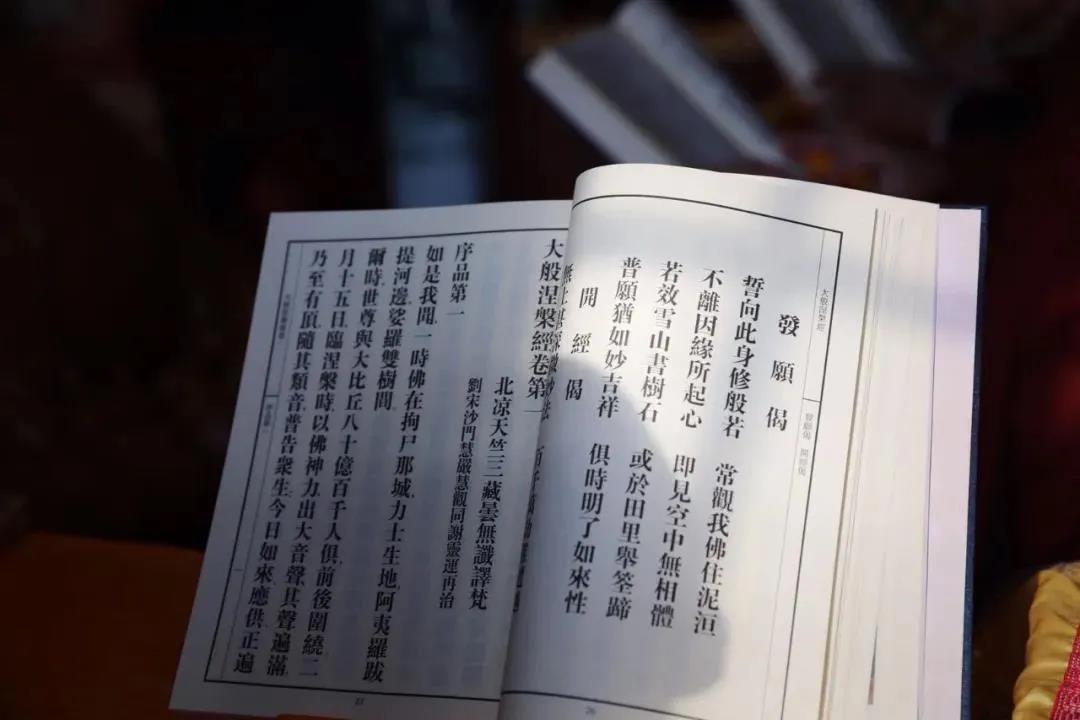 大般涅槃經
發願偈 開經偈
發願偈
誓向此身修般若 常觀我佛住泥洹
不離因緣所起心 即見空中無相體
若效雪山書樹石 或於田里舉筌蹄
普願猶如妙吉祥 俱時明了如來性
開經偈
26
大般涅槃經卷第一
北凉天竺三藏曇無讖譯梵
劉宋沙門慧嚴慧觀同謝靈運再治
序品第一
如是我聞一時佛在拘尸那城力士生地阿夷羅跋
提河邊娑羅雙樹間
爾時世尊與大比丘八十億百千人俱前後圍繞二
月十五日臨涅槃時以佛神力出大音聲其聲遍滿
乃至有頂隨其類音普告衆生今日如來應供正遍